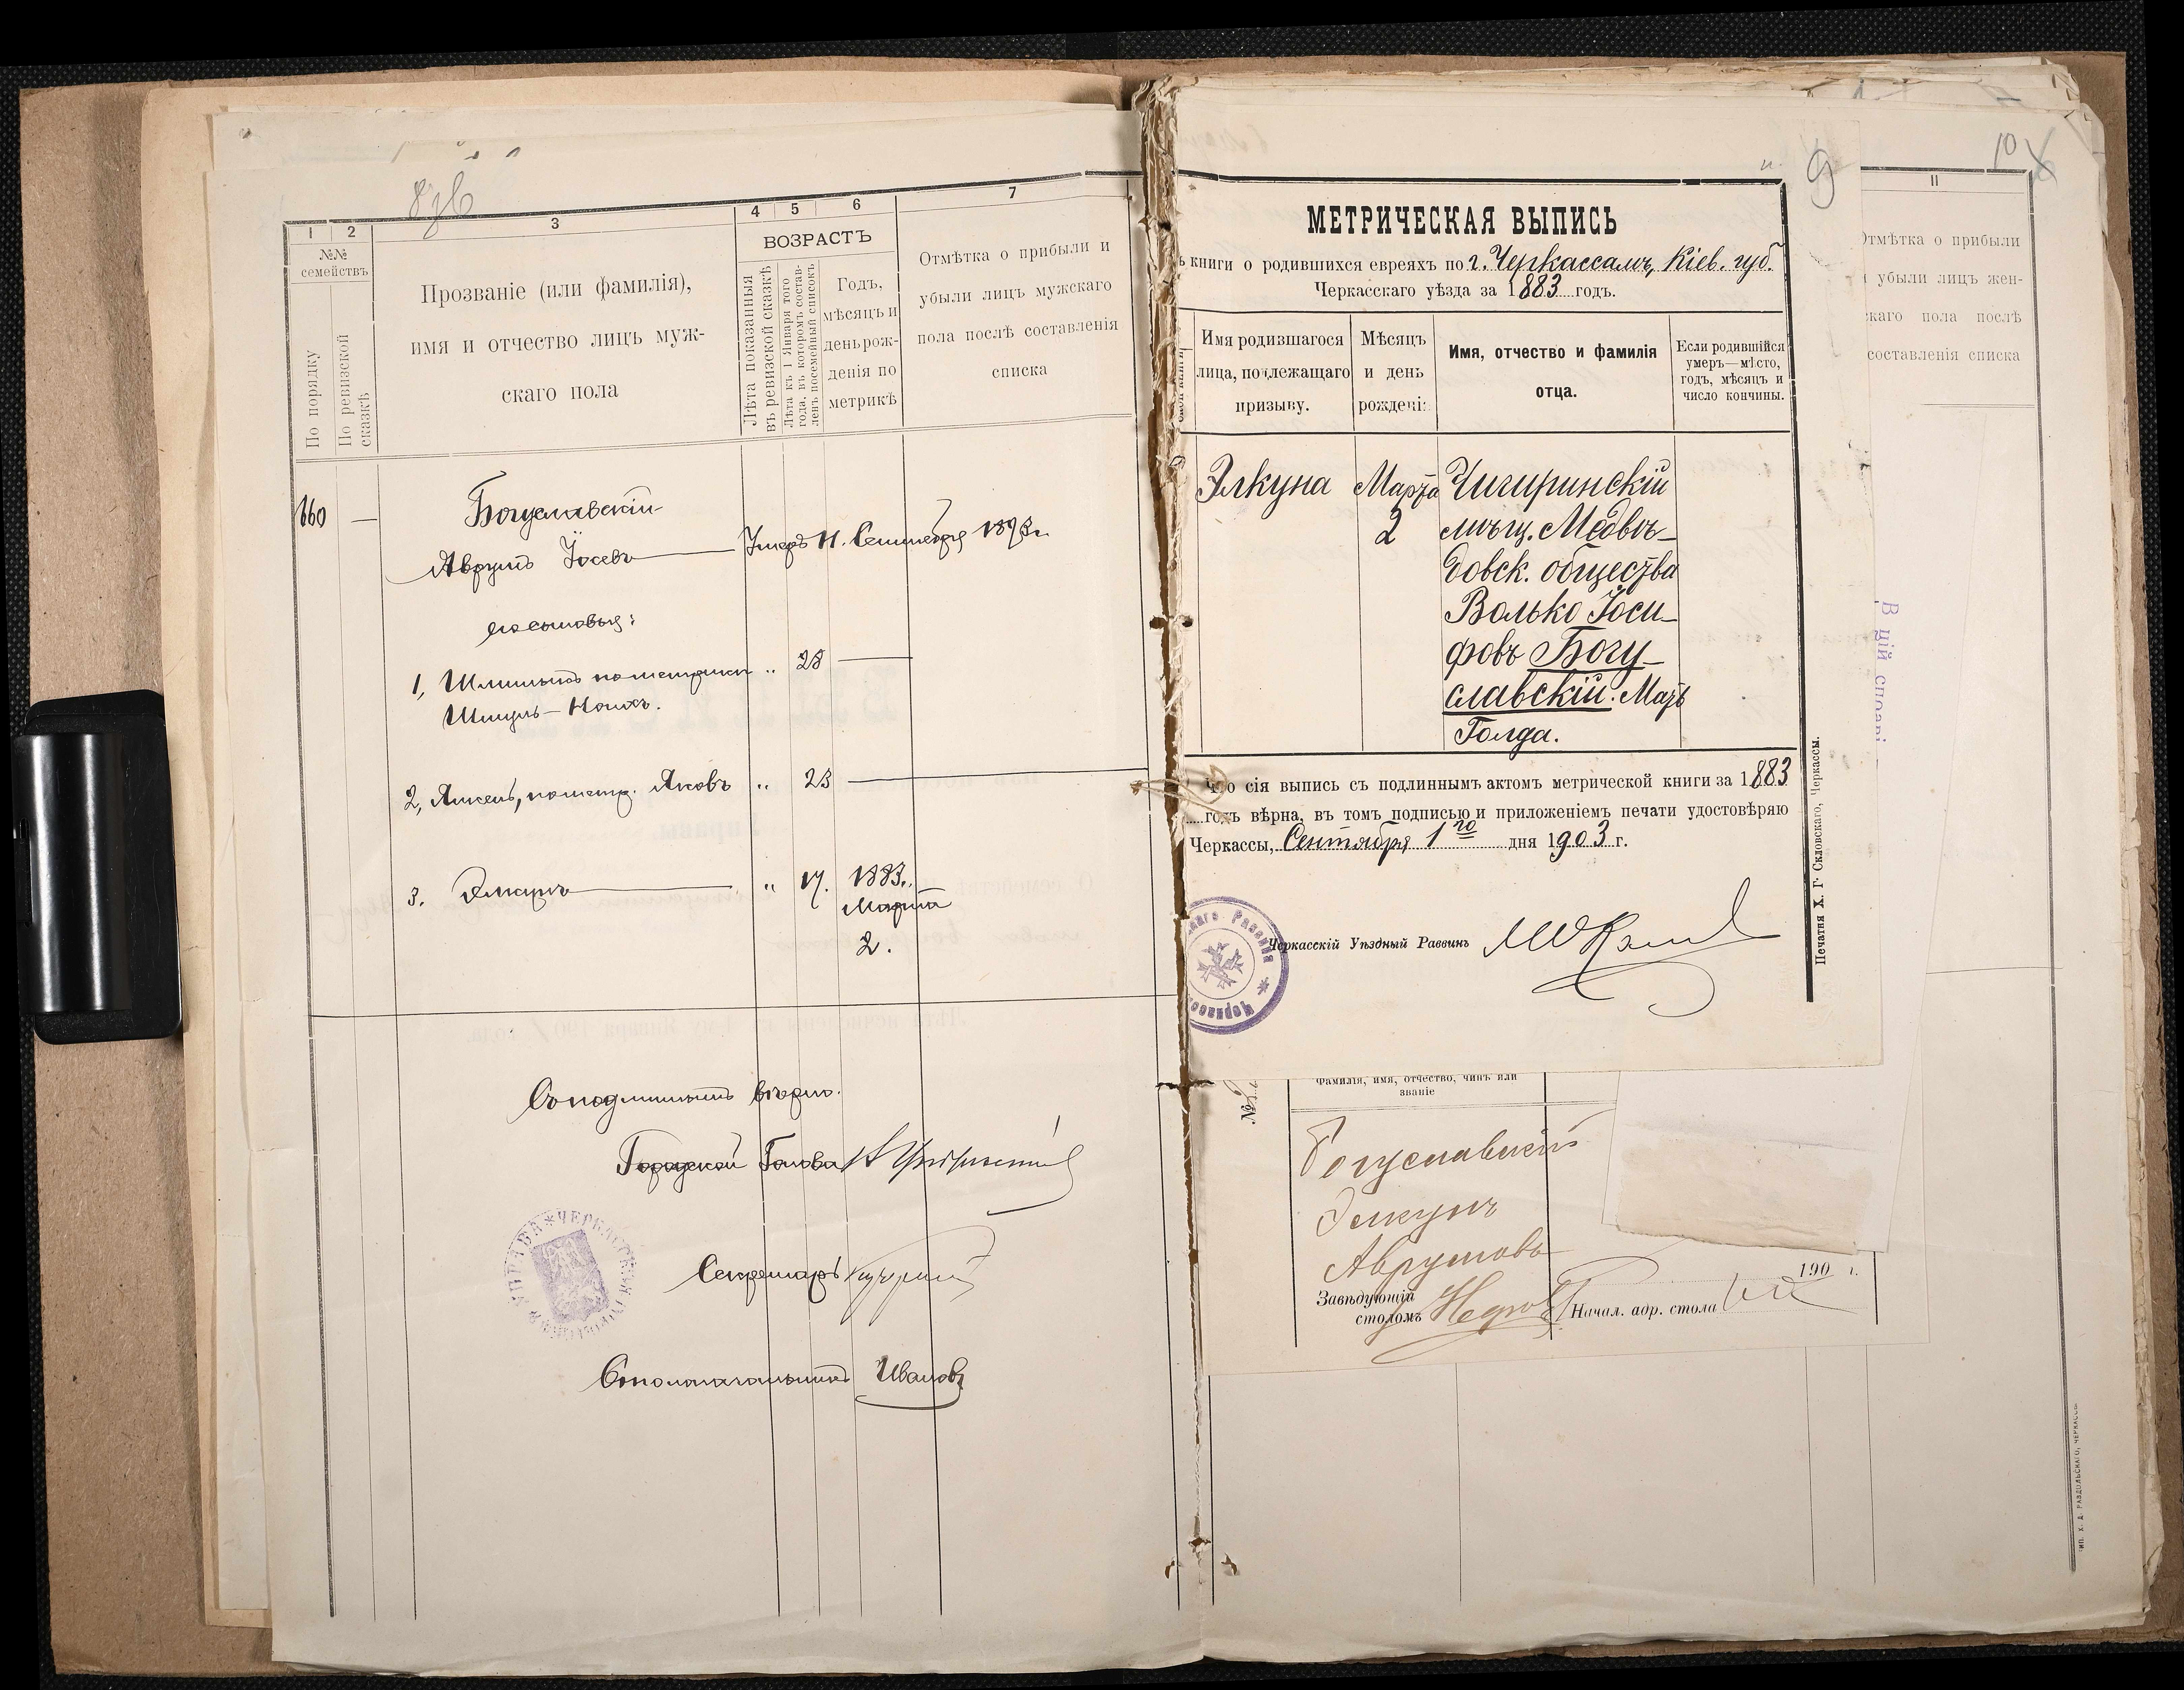 8зв
1 2 3 4 5 6 7
№№ семействъ
По порядку
По ревизской сказкѣ
Прозваніе (или фамилія),
имя и отчество лицъ муж-
скаго пола
ВОЗРАСТЪ
Лѣта показанныя
въ ревизской сказкѣ
Лѣта къ 1 Января того
года, въ которомъ состав-
ленъ посемейный списокъ
Годъ,
мѣсяцъ и
день рож-
денія по
метрикѣ
Отмѣтка о прибыли и
убыли лицъ мужскаго
пола послѣ составленія
списка
660 —
Богуславскій
Аврумъ Іосевъ — Умеръ 11. Сентября 1893 г.
его сыновья:
1, Шлиома по метрикѣ „ 28 —
Шмуль-Нахъ.
2, Янкель, по метр. Яковъ „ 23 —
3. Элкунъ — „ 17. 1883 г.
Марта
2.
Съ подлиннымъ вѣрно.
Городской Голова
Секретарь
Столоначальникъ Иванов
УПРАВА * ЧЕРКАССКАЯ
9
МЕТРИЧЕСКАЯ ВЫПИСЬ
ъ книги о родившихся евреяхъ по г. Черкассамъ, Кіев. губ.
Черкасскаго уѣзда за 1883 годъ.
Имя родившагося
лица, подлежащаго
призыву.
Мѣсяцъ
и день
рожденія
Имя, отчество и фамилія
отца.
Если родившійся
умеръ—мѣсто,
годъ, мѣсяцъ и
число кончины.
Элкуна Марта Чигиринскій
2 мѣщ. Медвѣ-
довск. общества
Волько Іоси-
фовъ Богу-
славскій. Мать
Голда.
Что сія выпись съ подлиннымъ актомъ метрической книги за 1883
годъ вѣрна, въ томъ подписью и приложеніемъ печати удостовѣряю
Черкассы, Сентября 1го дня 1903 г.
Черкасскій Уѣздный Раввинъ
Печатня Х. Г. Скловскаго, Черкассы.
№
Фамилія, имя, отчество, чинъ или
званіе
Богуславскій
Элкунъ
Аврумовъ
190 г.
Завѣдующій
столомъ
Начал. адр. стола
10
11
Отмѣтка о прибыли
и убыли лицъ жен-
скаго пола послѣ
составленія списка
В цій справі
ТИП. Х. Д. РАЗДОЛЬСКАГО, ЧЕРКАССЫ.